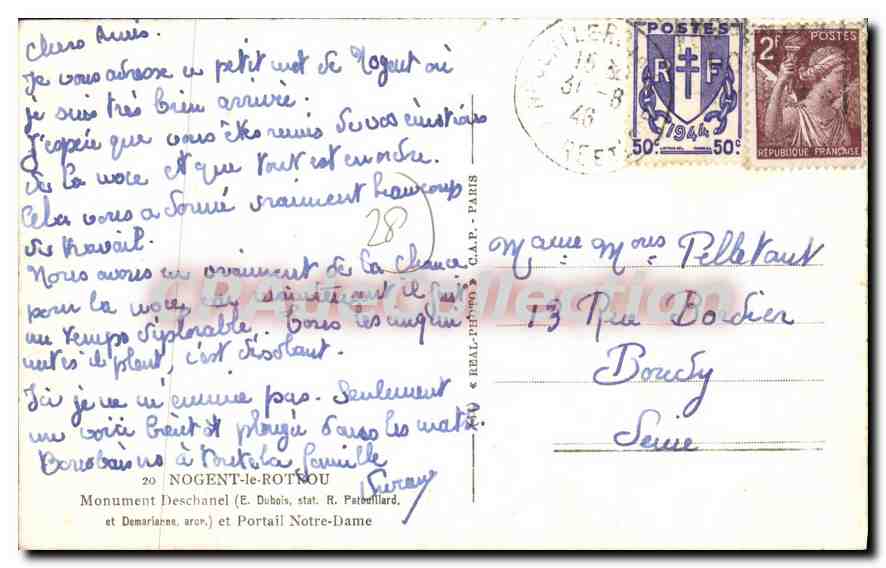 Chers Amis.
Je vous adresse un petit mot de Nogent où
je suis très bien arrivée.
J'espère que vous êtes remis de vos émotions
de la noce et que tout est en ordre.
Cela vous a donné vraiment beaucoup
de travail.
28
Nous avons eu vraiment de la chance
pour la noce, car maintenant il fait
un temps déplorable. Tous les
minutes il pleut, c'est désolant.
Ici je ne m'ennuie pas. Seulement
me voici bientôt plongée dans les maths.
Bons baisers à toute la famille
20 NOGENT-le-ROTROU
Monument Deschanel (E. Dubois, stat. R. Patouillard,
et Demarianne, arcr.) et Portail Notre-Dame
« REAL-PHOTO » C.A.P. - PARIS
31 -8
46
POSTES
RF
1944
50c 50c
2F POSTES
RÉPUBLIQUE FRANÇAISE
Mame Mons Pelletant
13 Rue Bordier
Bondy
Seine
CPACollection